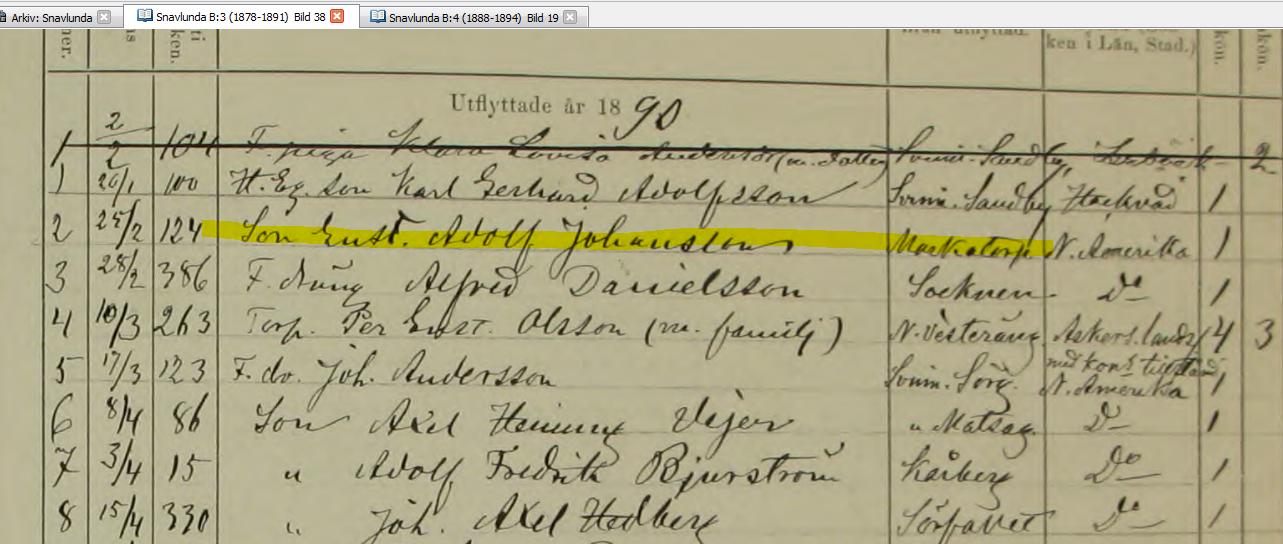 Arkiv: Snavlunda
Snavlunda B:3 (1878-1891) Bild 38
Snavlunda B:4 (1888-1894) Bild 19
mer. ti ken. från utflyttad. ken i Län, Stad.) kön. nkön.
Utflyttade år 1890
1 2/2 104 F. piga Klara Lovisa Andersson (m. dotter) Snmn. Sandby, 2
1 20/1 100 H. Eg. son Karl Gerhard Adolfsson Snmn. Sandby Hackvad 1
2 25/2 124 Son Gust. Adolf Johansson Markatorp N. Amerika 1
3 28/2 386 F. dräng Alfred Danielsson Socknen Do 1
4 10/3 263 Torp. Per Gust. Olsson (m. familj) N. Vesteräng Askers. landsf 4 3
5 17/3 123 F. do. Joh. Andersson Snmn. Sörg. med kons tillstånd N. Amerika 1
6 8/4 86 Son Axel Heming Vejer " Matsag. Do 1
7 3/4 15 " Adolf Fredrik Bjurström Kårberg Do 1
8 15/4 330 " Joh. Axel Hedberg Sörfallet Do 1